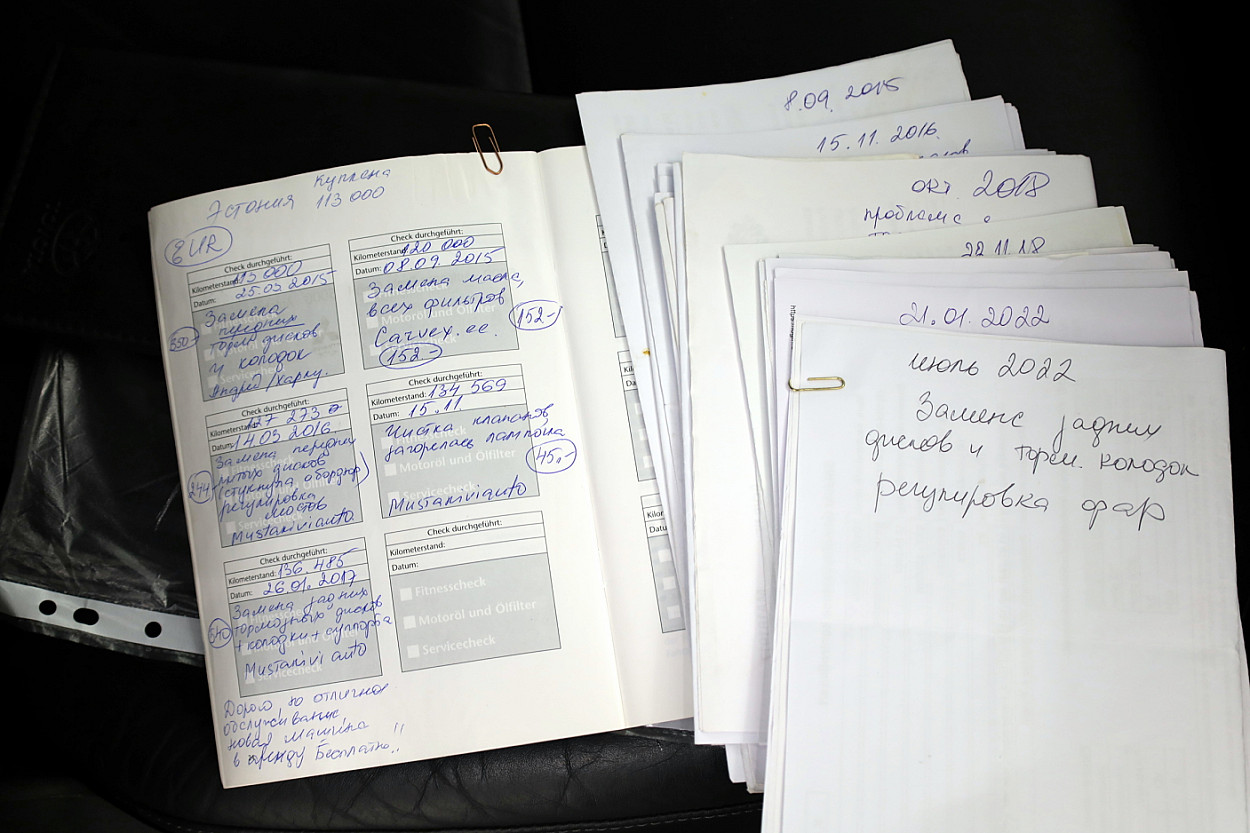 куплена
Эстония 113 000
EUR
Check durchgeführt:
Kilometerstand: 113 000
Datum: 25.03 2015
Замена
передних
торм. дисков
и колодок
350-
Check durchgeführt:
Kilometerstand: 120 000
Datum: 08.09 2015
Замена масла,
всех фильтров
Motoröl und Ölfilter
Carvex.ee.
152-
152-
Check durchgeführt:
Kilometerstand: 127 273
Datum: 14.03 2016
Замена передних
литых дисков
регулировка
мостов
Mustamivi auto
Servicecheck
244
Check durchgeführt:
Kilometerstand: 134 569
Datum: 15.11
Чистка клапанов
загорелась лампочка
Motoröl und Ölfilter
Servicecheck
Mustamivi auto
45,-
Check durchgeführt:
Kilometerstand: 136.485
Datum: 26.01.2017
Замена задних
тормозных дисков
+ колодки + суппорта
Mustamivi auto
Servicecheck
540
Check durchgeführt:
Kilometerstand:
Datum:
Fitnesscheck
Motoröl und Ölfilter
Servicecheck
Дорого, но отличное
обслуживание
новая машина
в аренду бесплатно!!
8.09. 2015
15.11. 2016.
окт. 2018
проблема с
22.11.18
21.01.2022
июль 2022
Замена задних
дисков и торм. колодок
регулировка фар